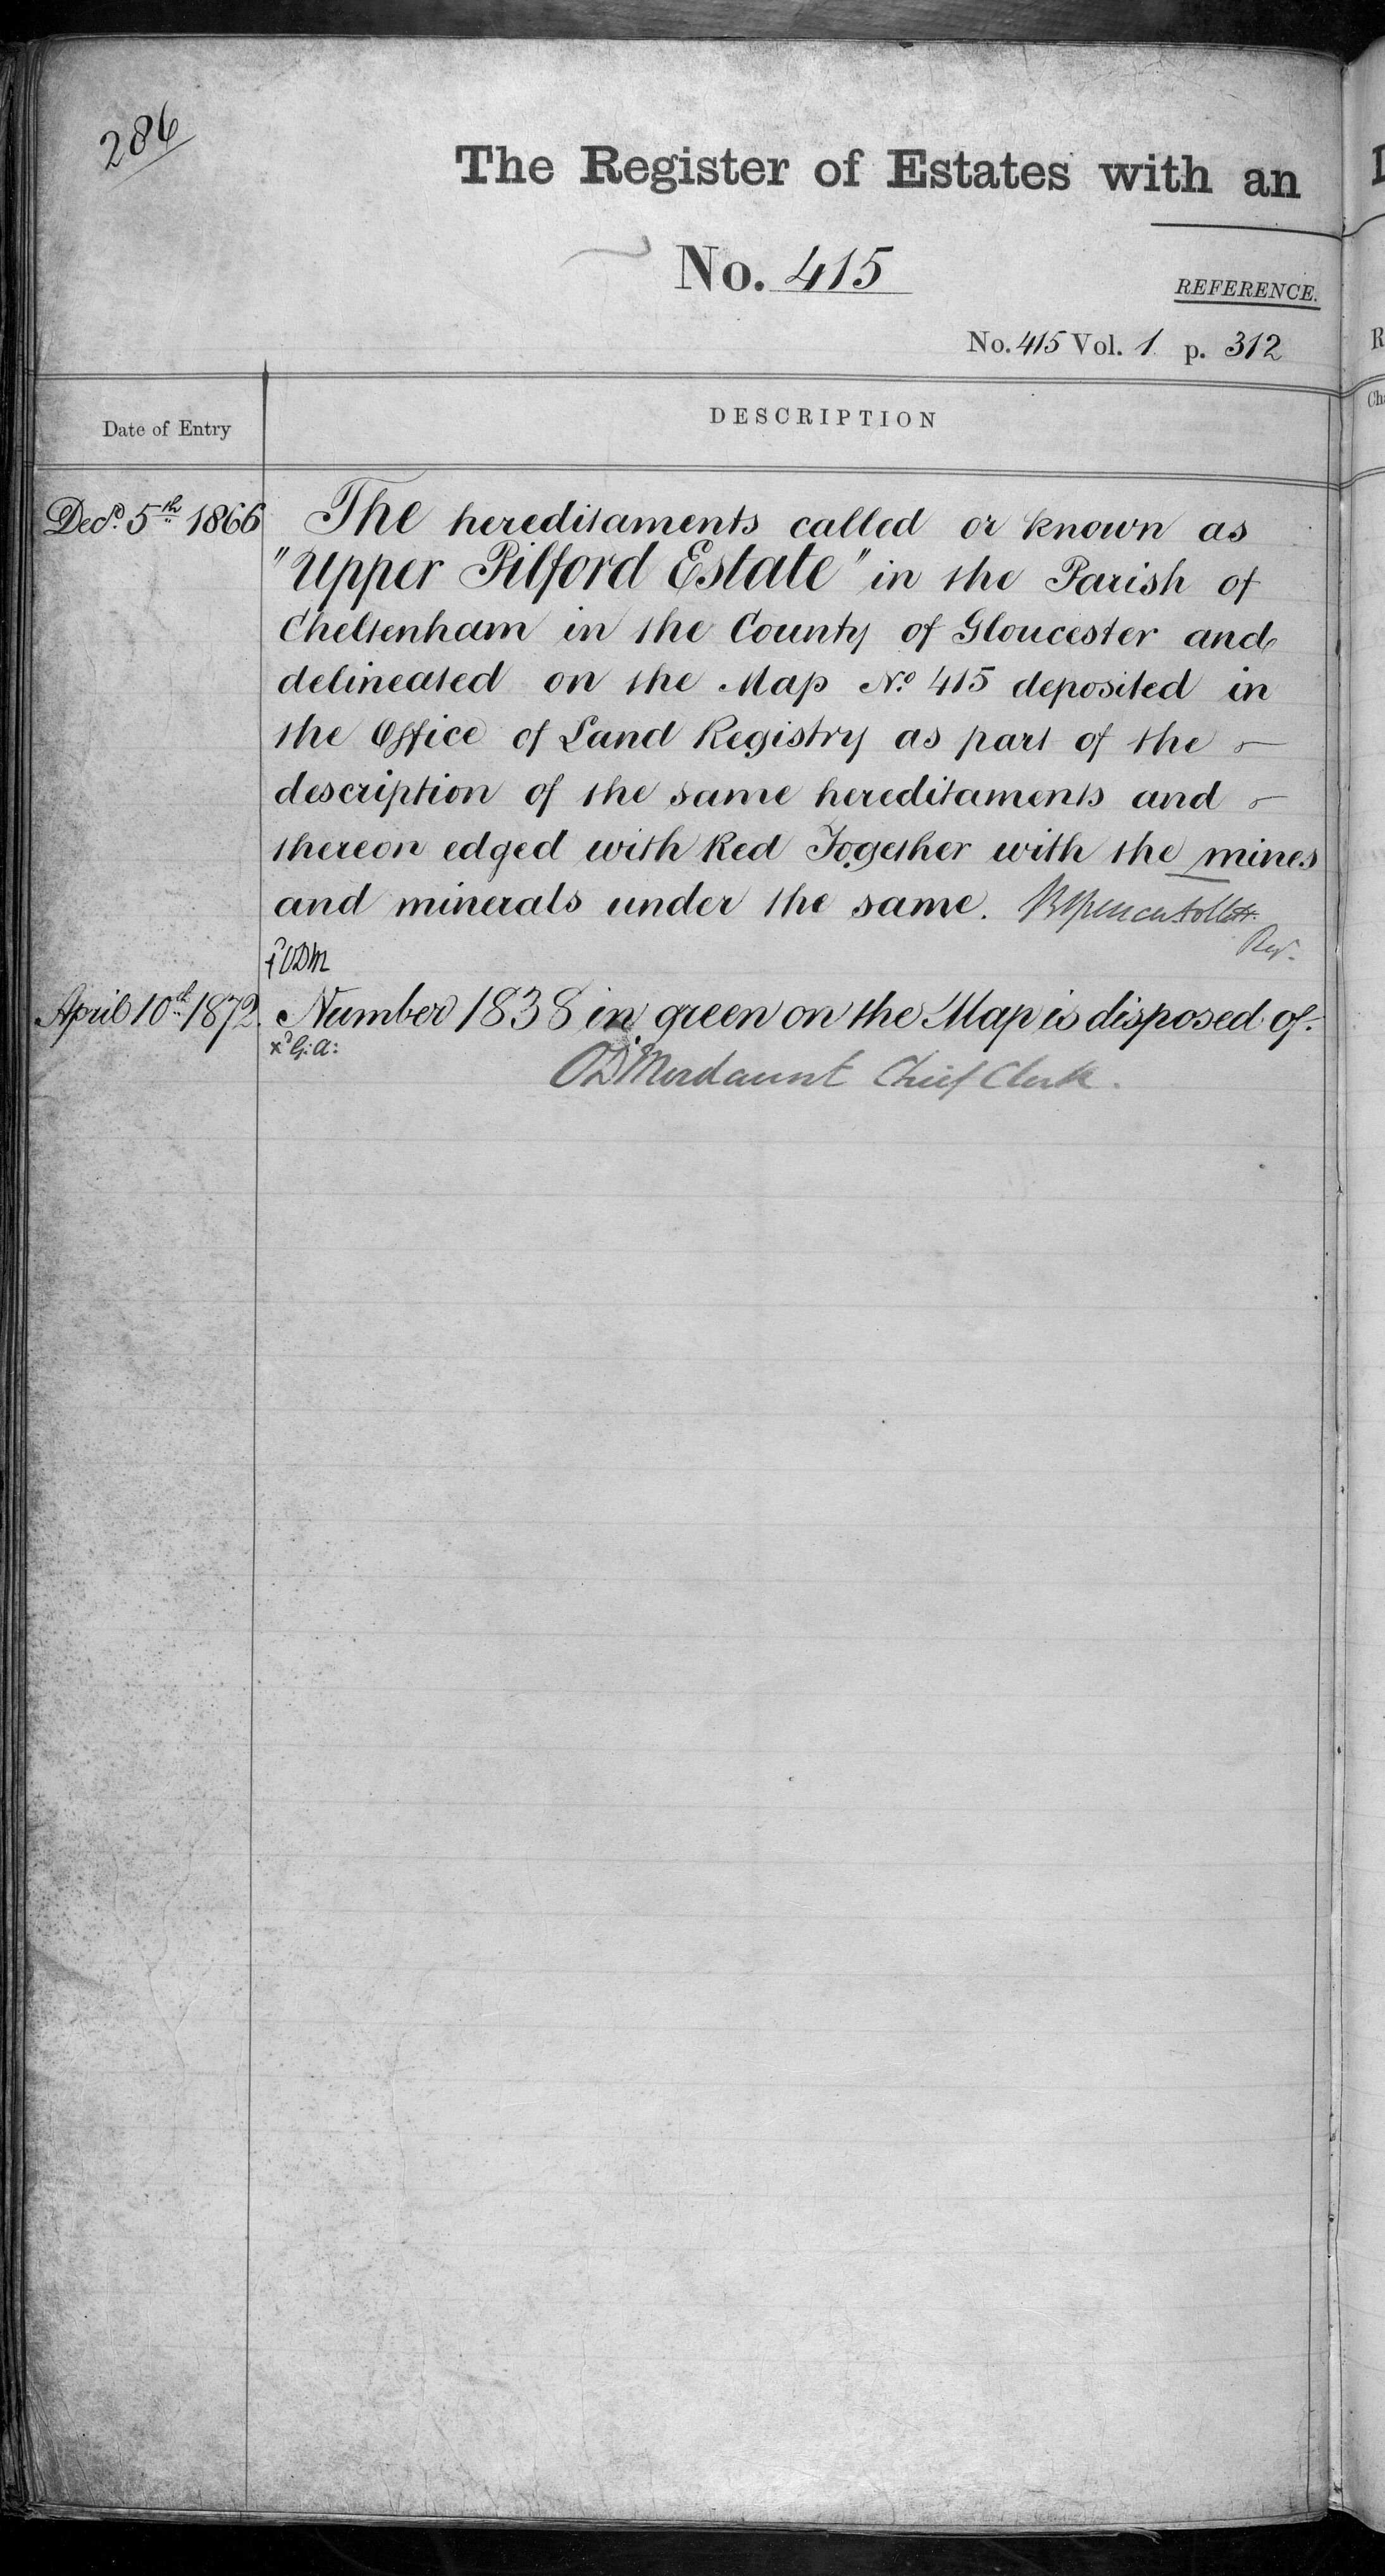 286
The Register of Estates with an
No. 415
REFERENCE.
No. 415 Vol. 1. p. 312
Date of Entry
DESCRIPTION
Decr. 5th 1866 The hereditaments called or known as
"Upper Pilford Estate" in the Parish of
Cheltenham in the County of Gloucester and
delineated on the Map No. 415 deposited in
the Office of Land Registry as part of the
description of the same hereditaments and
thereon edged with Red Together with the mines
and minerals under the same.
Regr.
ODM
April 10th 1872. Number 1838 in green on the Map is disposed of.
xd G: A:
OD Mordaunt Chief Clerk.